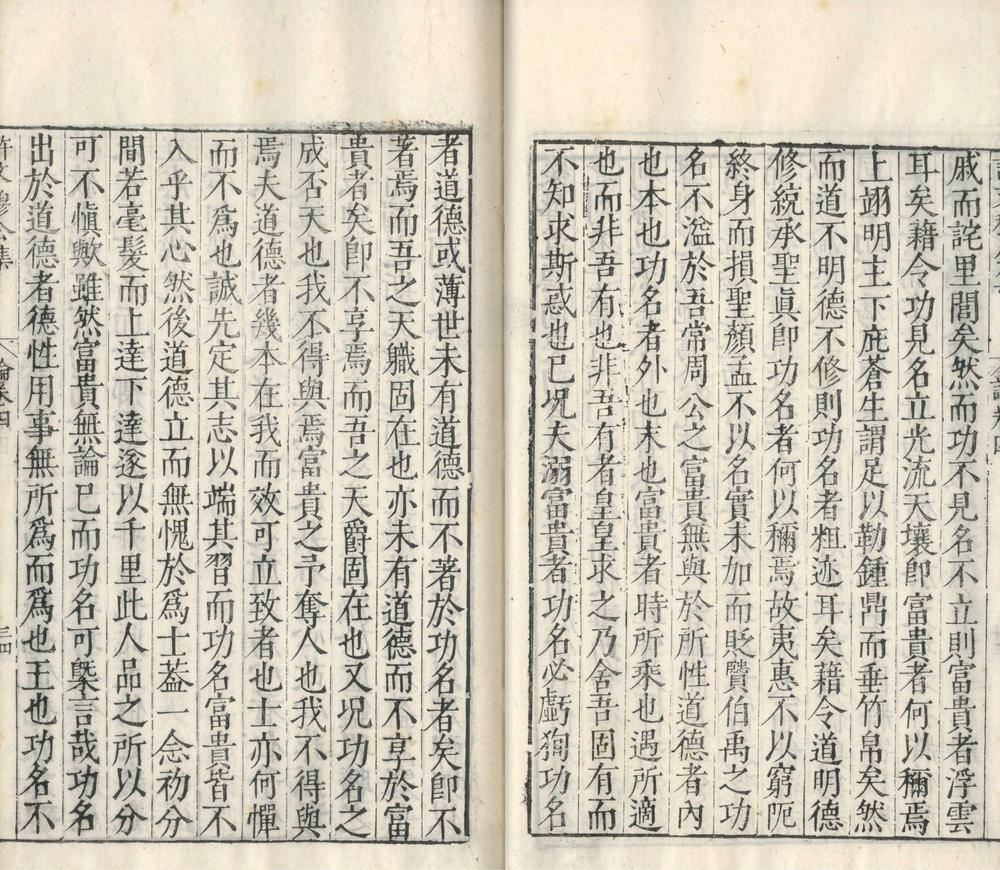 戚而詫里閭矣然而功不見名不立則富貴者浮雲
耳矣藉令功見名立光流天壤卽富貴者何以稱焉
上翊明主下庇蒼生謂足以勒鍾鼎而垂竹帛矣然
而道不明德不修則功名者粗迹耳矣藉令道明德
修統承聖眞卽功名者何以稱焉故夷惠不以窮阨
終身而損聖顏孟不以名實未加而貶賢伯禹之功
名不溢於吾常周公之富貴無與於所性道德者內
也本也功名者外也末也富貴者時所乘也遇所適
也而非吾有也非吾有者皇皇求之乃舍吾固有而
不知求斯惑也已況夫溺富貴者功名必虧狥功名
者道德或薄世未有道德而不著於功名者矣卽不
著焉而吾之天職固在也亦未有道德而不享於富
貴者矣卽不享焉而吾之天爵固在也又況功名之
成否天也我不得與焉富貴之予奪人也我不得與
焉夫道德者幾本在我而效可立致者也士亦何憚
而不爲也誠先定其志以端其習而功名富貴皆不
入乎其心然後道德立而無愧於爲士葢一念初分
間若毫髮而上達下達遂以千里此人品之所以分
可不愼歟雖然富貴無論已而功名可槩言哉功名
出於道德者德性用事無所爲而爲也王也功名不
許文穆公集 論卷四 三四